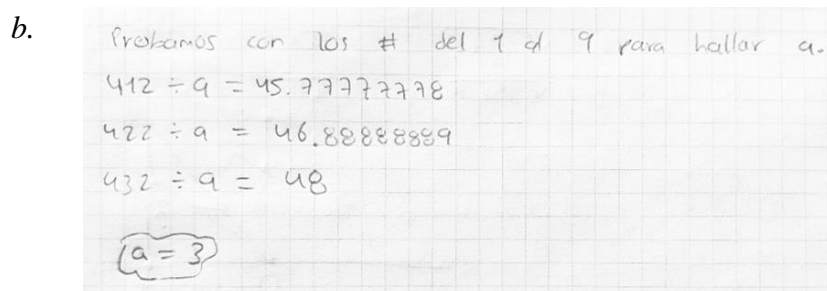 b.
Probamos con los # del 1 al 9 para hallar a.
412 ÷ 9 = 45.77777778
422 ÷ 9 = 46.88888889
432 ÷ 9 = 48
a = 3